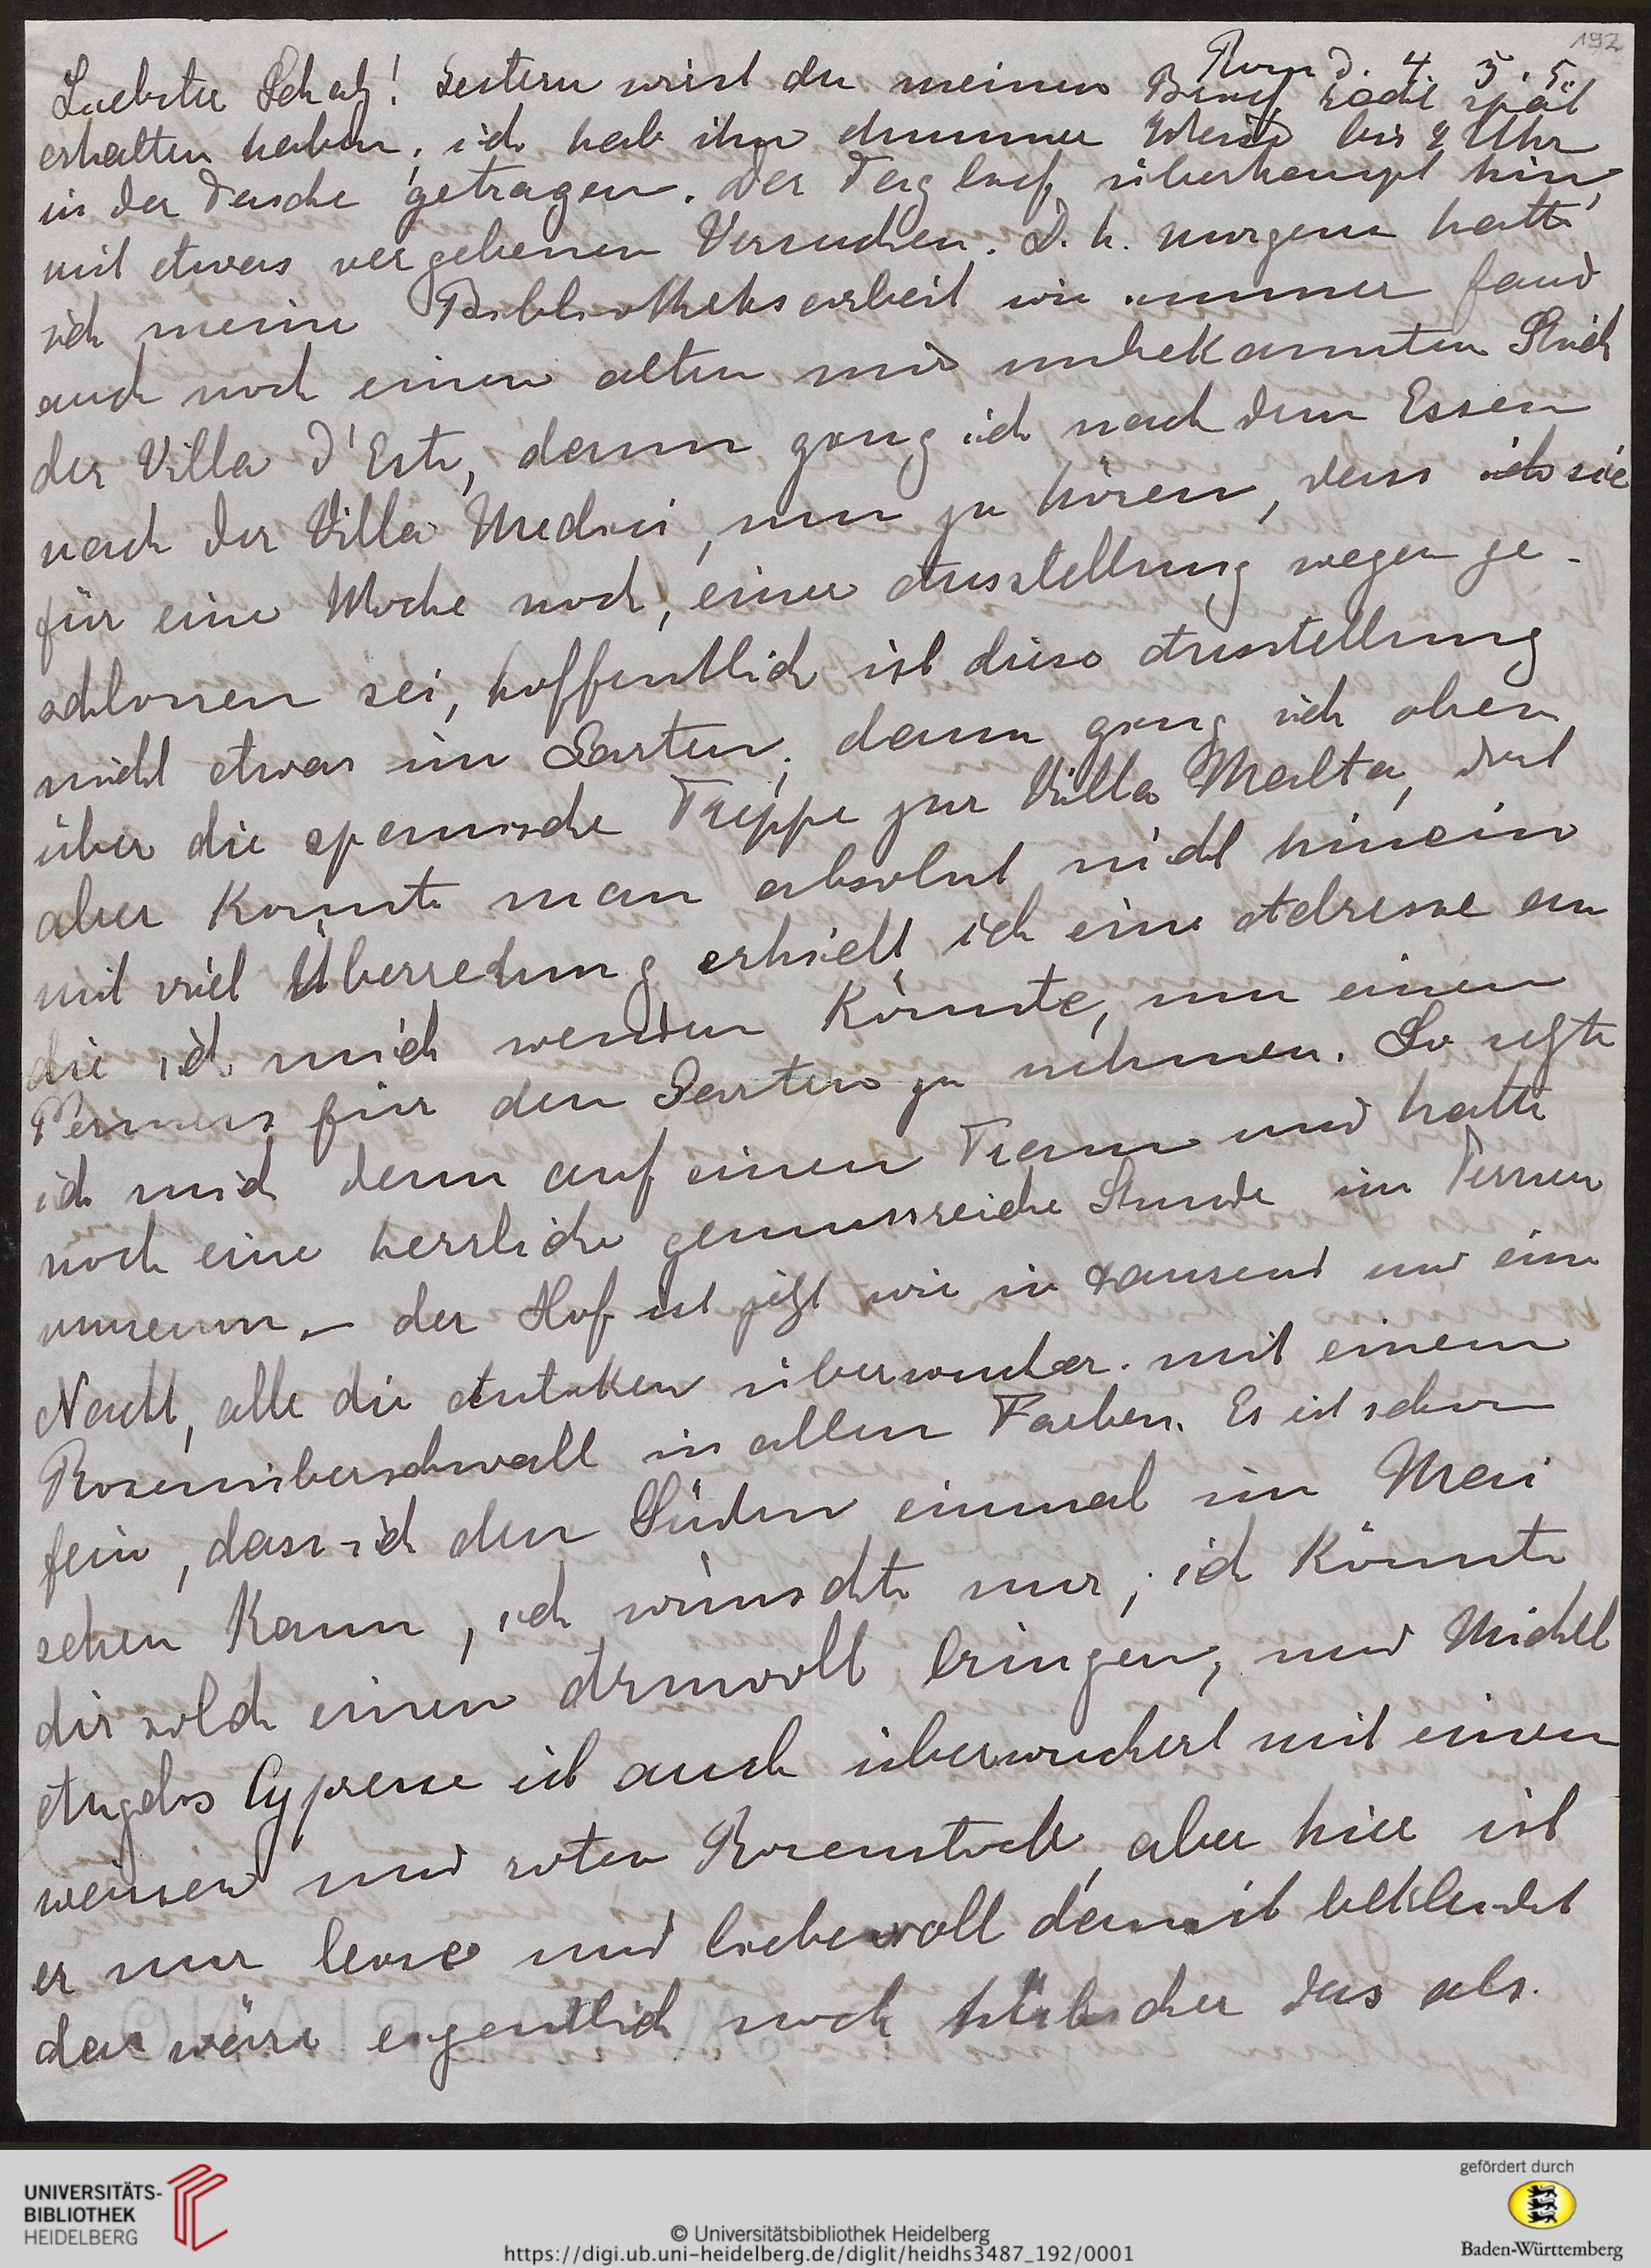 192
Rom d. 4. 5. 5.
Liebster Schatz! Gestern wirst du meinen Brief recht spät
erhalten haben, ich hab ihn dummer Weise bis 9 Uhr
in der Tasche getragen. Der Tag lief überhaupt hin,
mit etwas vergebenen Versuchen. D. h. morgens hatte
ich meine Bibliotheksarbeit wie immer fand
auch noch einen alten mir unbekannten Stich
der Villa d'Este, dann ging ich nach dem Essen
nach der Villa Medici, um zu hören, dass sie
für eine Woche noch, einer Ausstellung wegen ge-
schlossen sei, hoffentlich ist diese Ausstellung
nicht etwas im Garten, dann ging ich oben
über die spanische Treppe zur Villa Malta, dort
aber konnte man absolut nicht hinein
mit viel Überredung erhielt ich eine Adresse an
die ich mich wenden könnte, um einen
Permess für den Garten zu nehmen. So setzte
ich mich denn auf einen Tram und hatte
noch eine herrliche genussreiche Stunde im Termen
museum – der Hof ist jetzt wie in tausend und eine
Nacht, alle die Antiken überwuchert mit einem
Rosenüberschwall in allen Farben. Es ist schon
fein, dass ich den Süden einmal im Mai
sehen kann, ich wünschte nur, ich könnte
dir solch einen Armvoll bringen, und Michel
Angelos Cypresse ist auch überwuchert mit einem
weissen und roten Rosenstock, aber hier ist
er nur leise und liebevoll damit bekleidet
das wäre eigentlich noch hübscher das als.
UNIVERSITÄTS-
BIBLIOTHEK
HEIDELBERG
© Universitätsbibliothek Heidelberg
https://digi.ub.uni-heidelberg.de/diglit/heidhs3487_192/0001
gefördert durch
Baden-Württemberg